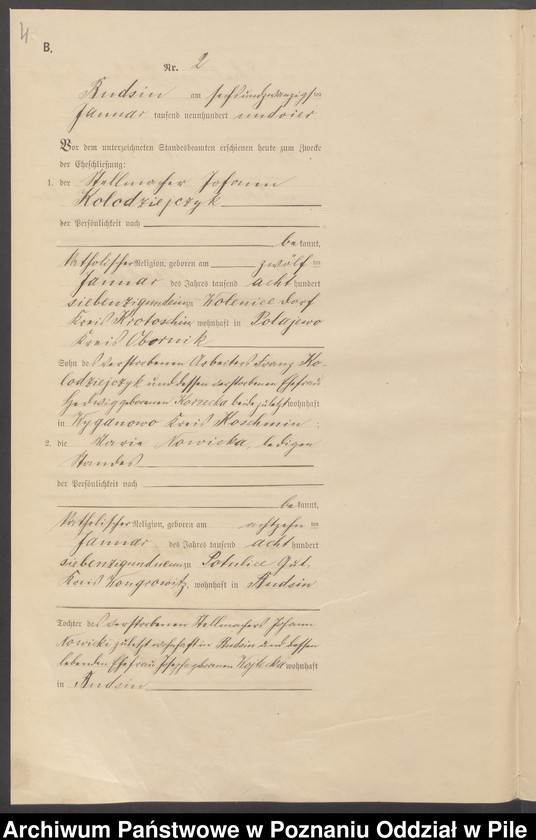 4
B.
Nr. 2
Rudsin am sechsundzwanzigsten
Januar tausend neunhundert und vier
Vor dem unterzeichneten Standesbeamten erschienen heute zum Zwecke
der Eheschließung:
1. der Stellmacher Johann
Kolodziejczyk
der Persönlichkeit nach
bekannt,
katholischer Religion, geboren am zwölften
Januar des Jahres tausend achthundert
siebenzigundein zu Wolenice Dorf
Kreis Krotoschin, wohnhaft in Polajewo
Kreis Obornik
Sohn des verstorbenen Arbeiters Franz Ko-
lodziejczyk und dessen verstorbenen Ehefrau
Hedwig geborenen Korzecka beide zuletzt wohnhaft
in Wyganowo Kreis Koschmin.
2. die Maria Nowicka, ledigen
Standes
der Persönlichkeit nach
bekannt,
katholischer Religion, geboren am achtzehnten
Januar des Jahres tausend achthundert
siebenzigundneun zu Potulice Gut,
Kreis Wongrowitz, wohnhaft in Rudsin
Tochter des verstorbenen Stellmachers Johann
Nowicki zuletzt wohnhaft in Rudsin und dessen
lebenden Ehefrau Josepha geborenen wohnhaft
in Rudsin
Archiwum Państwowe w Poznaniu Oddział w Pile